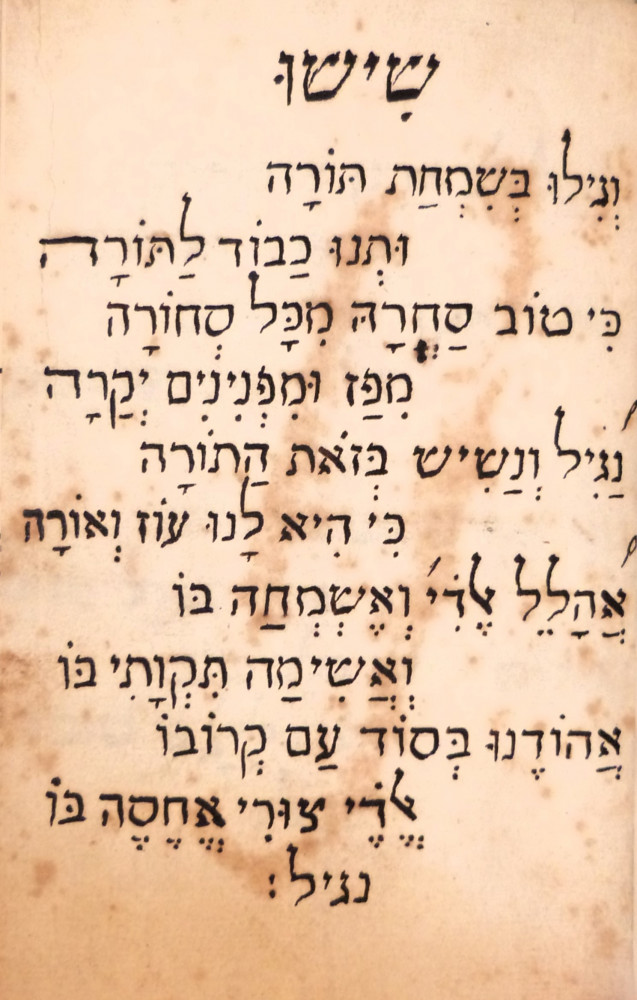 שִישוּ
וְגִילוּ בְּשִמְחַת תּוֹרָה
וּתְנוּ כַּבוֹד לַתּוֹרָה
כִּי טוֹב סַחְרָהּ מִכָּל סְחוֹרָה
מִפַּז וּמִפְּנִינִים יְקָרָה
נַגִיל וְנַשִיש בְּזֹאת הַתוֹרָה
כִּי הִיא לָנוּ עוֹז וְאוֹרָה
אֲהָלֵל אֱלֹדִי וְאֶשְמְחַה בּוֹ
וְאֲשִימַה תִּקְוָתִי בּוֹ
אֲהוֹדֶנוּ בְּסוֹד עַם קְרוֹבוֹ
אֱלֹדֵי צוּרִי אֶחֱסֶה בּוֹ
נגיל: